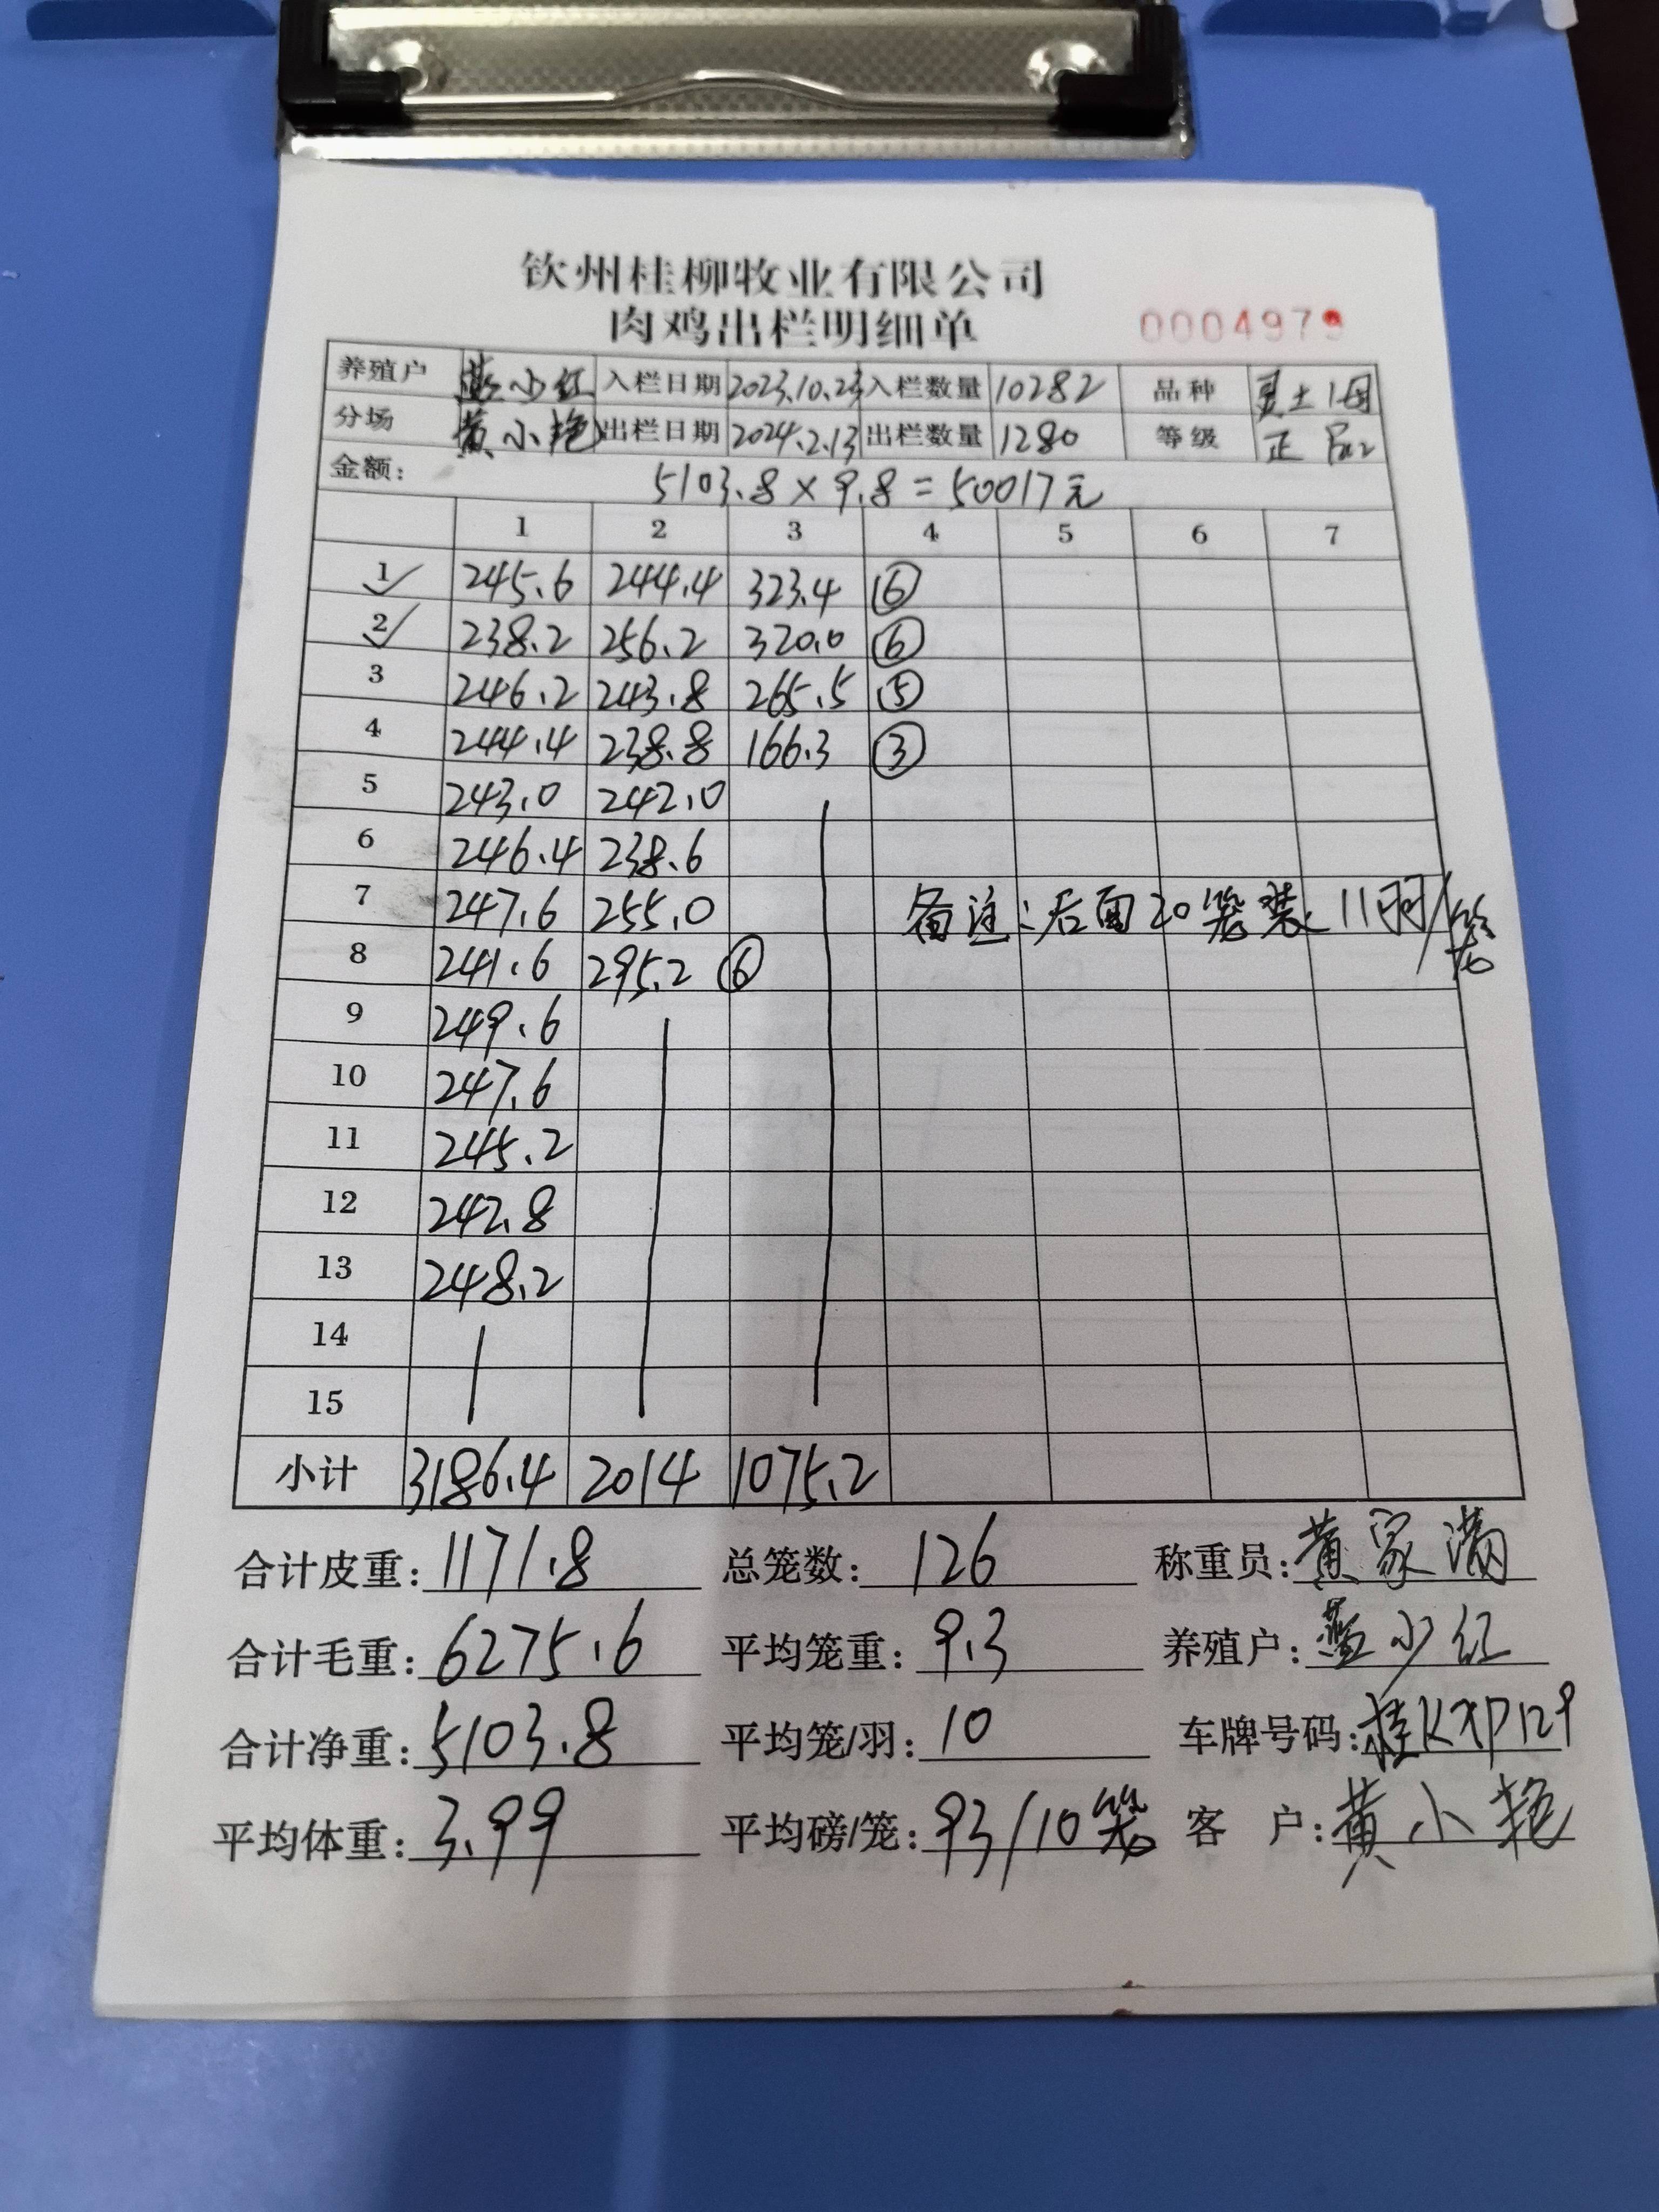 钦州桂柳牧业有限公司
肉鸡出栏明细单 0004979
养殖户 小红 入栏日期 2023.10.23 入栏数量 10282 品种 土1母
分场 黄小艳 出栏日期 2024.2.13 出栏数量 1280 等级 正品
金额: 5103.8×9.8=50017元
1 2 3 4 5 6 7
1 245.6 244.4 323.4 ⑥
2 238.2 256.2 320.0 ⑥
3 246.2 243.8 265.5 ⑤
4 244.4 238.8 166.3 ③
5 243.0 242.0
6 246.4 238.6
7 247.6 255.0 备注:后面20笼装11羽/笼
8 241.6 295.2 ⑥
9 249.6
10 247.6
11 245.2
12 242.8
13 248.2
14
15
小计 3186.4 2014 1075.2
合计皮重: 1171.8 总笼数: 126 称重员: 黄家满
合计毛重: 6275.6 平均笼重: 9.3 养殖户: 小红
合计净重: 5103.8 平均笼/羽: 10 车牌号码: 桂KXP129
平均体重: 3.99 平均磅/笼: 93/10笼 客 户: 黄小艳